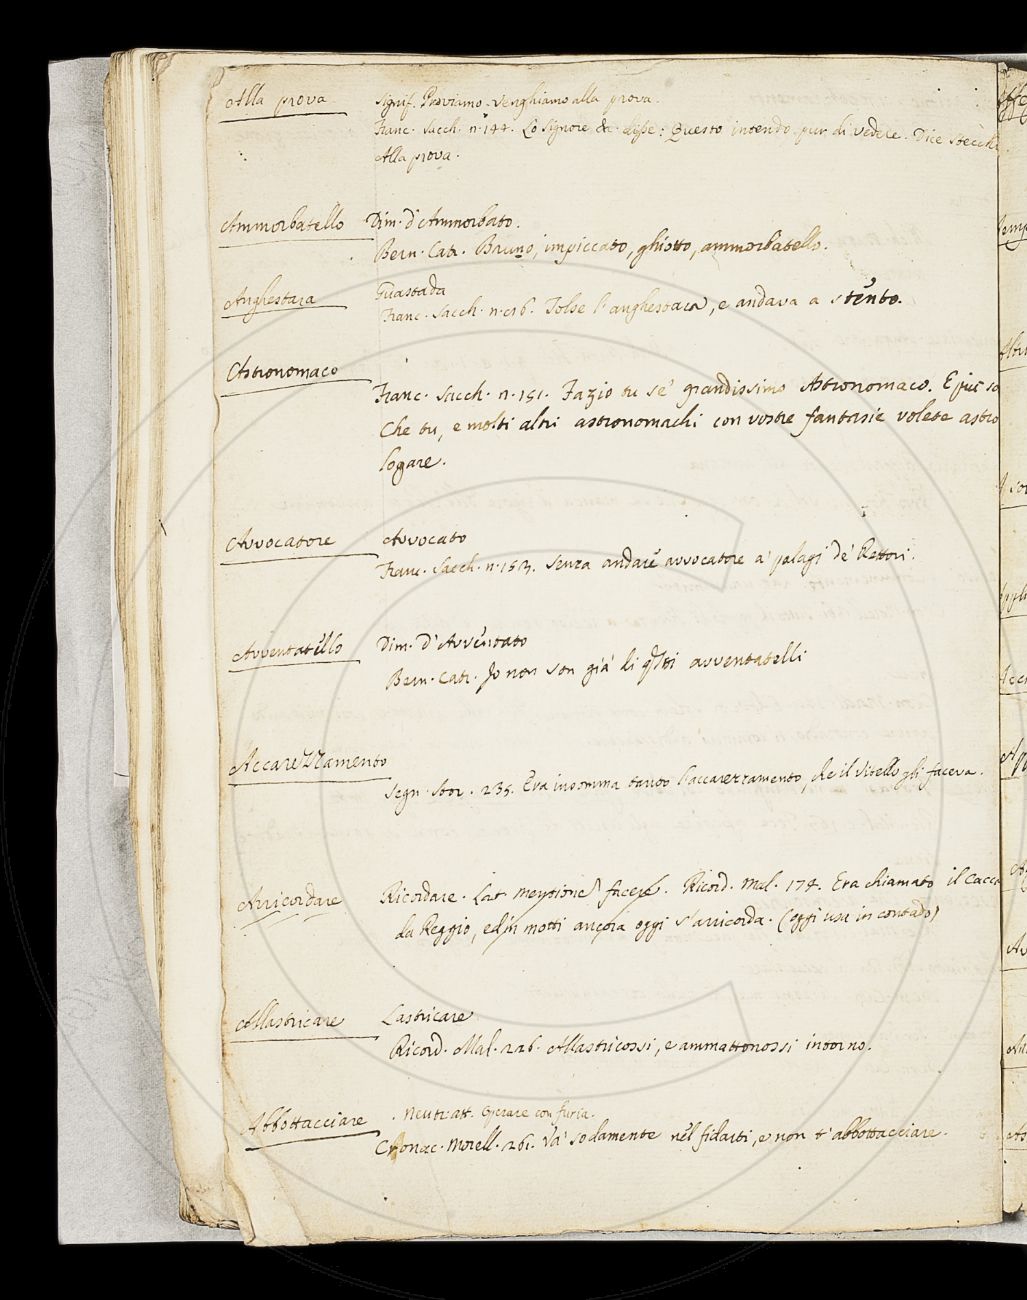 Alla prova Signif. Proviamo. Venghiamo alla prova.
Franc. Sacch. n. 144. Lo Signore &c. disse: Questo intendo pur di vedere. Dice Stecchi
Alla prova.
Ammorbatello Dim. d'Ammorbato.
Bern. Catr. Bruno, impiccato, ghiotto, ammorbatello.
Anghestara Guastada
Franc. Sacch. n. c16. Tolse l'anghestara, e andava a stento.
Astronomaco
Franc. Sacch. n. 151. Fazio tu se' grandissimo Astronomaco. E più so
Che tu, e molti altri astronomachi con vostre fantasie volete astro
logare.
Avvocatore Avvocato
Franc. Sacch. n. 153. Senza andare avvocatore a' palagi de' Rettori.
Avventatello Dim. d'Avventato
Bern. Catr. Jo non son già di q̃sti avventatelli
Accarezzamento
Segn. Stor. 235. Era insomma tanto l'accarezzamento, che il Vitello gli faceva.
Arricordare Ricordare. Lat. mentione facere. Ricord. Mal. 174. Era chiamato il Cacca
da Reggio, ed in motti ancora oggi s'arricorda. (oggi usa in contado)
Allastricare Lastricare.
Ricord. Mal. 226. Allastricossi, e ammattonossi intorno.
Abbottacciare Neutr. att. Operare con furia.
Cronac. Morell. 261. Va' sodamente nel fidarti, e non t'abbottacciare.